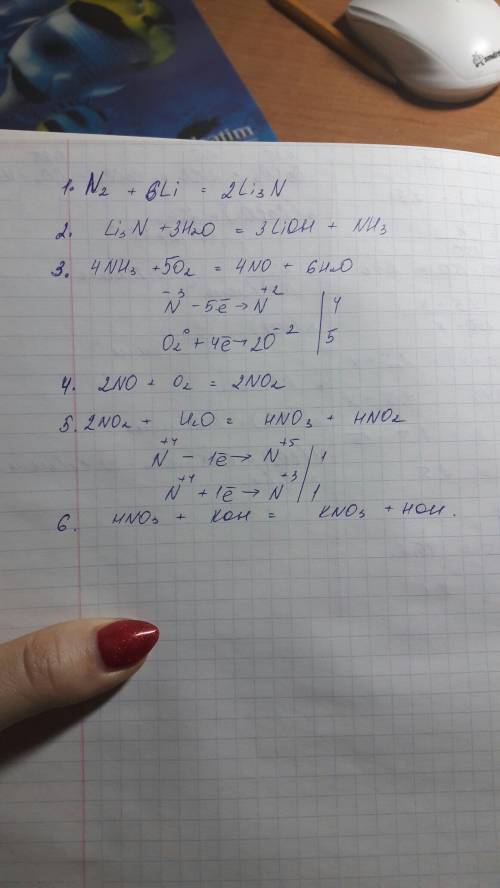 1. N₂ + 6Li = 2Li₃N
2. Li₃N + 3H₂O = 3LiOH + NH₃
3. 4NH₃ + 5O₂ = 4NO + 6H₂O
N⁻³ - 5ē → N⁺² | 4
O₂⁰ + 4ē → 2O⁻² | 5
4. 2NO + O₂ = 2NO₂
5. 2NO₂ + H₂O = HNO₃ + HNO₂
N⁺⁴ - 1ē → N⁺⁵ | 1
N⁺⁴ + 1ē → N⁺³ | 1
6. HNO₃ + KOH = KNO₃ + HOH.